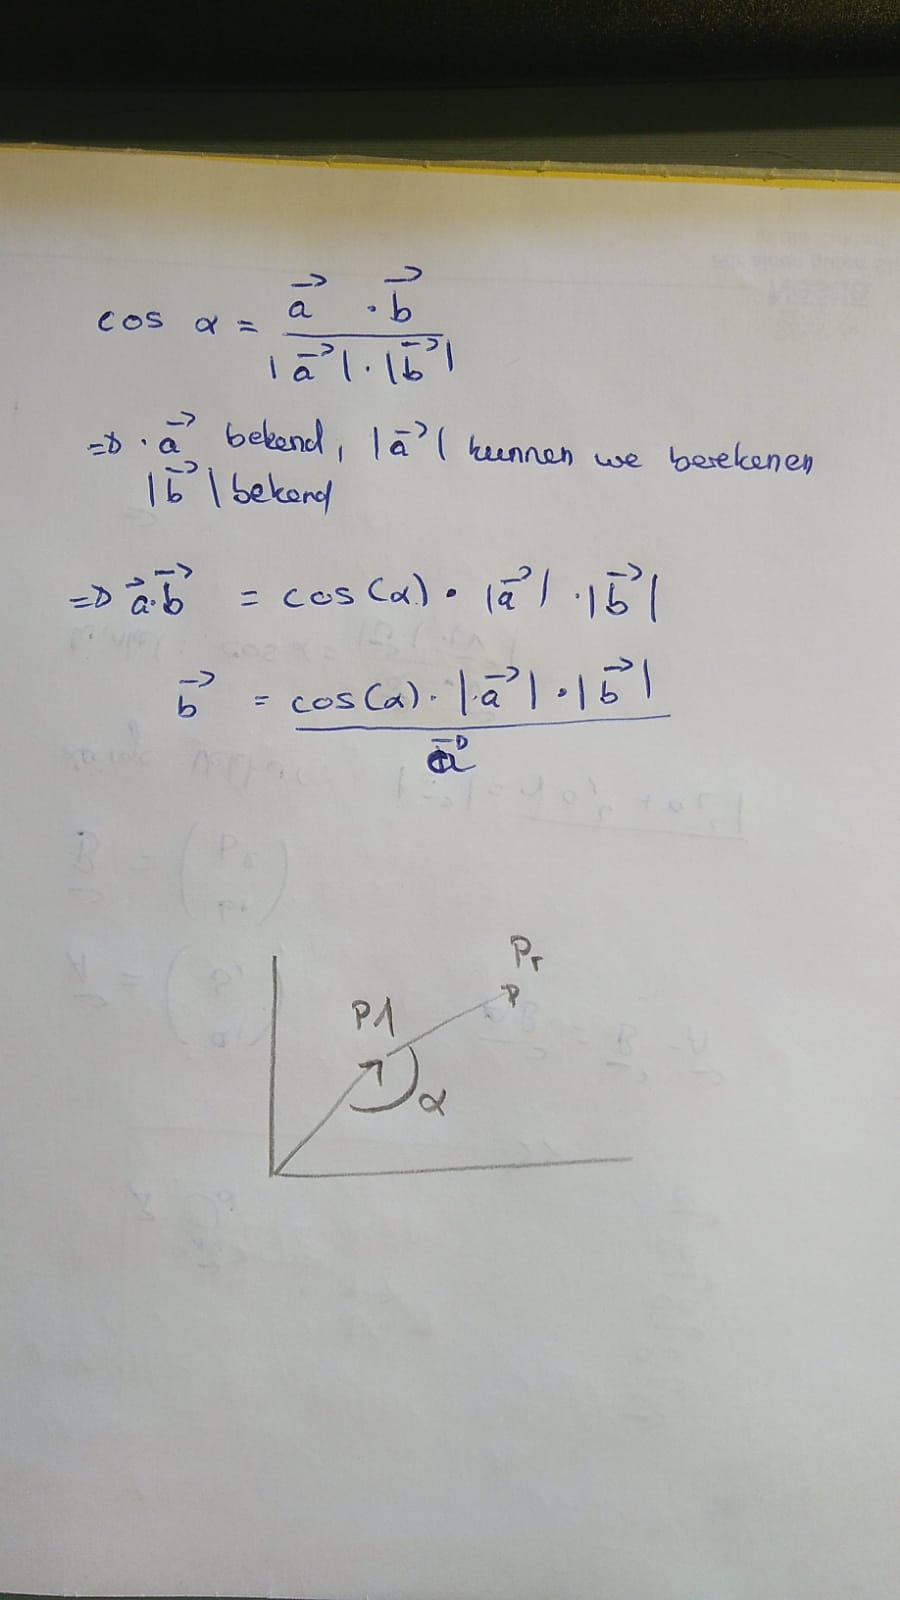 cos α = a⃗ · b⃗ / |a⃗| · |b⃗|
=> · a⃗ bekend, |a⃗| kunnen we berekenen
|b⃗| bekend
=> a⃗·b⃗ = cos(α) · |a⃗| · |b⃗|
b⃗ = cos(α) · |a⃗| · |b⃗| / a⃗
Pr
P1
α